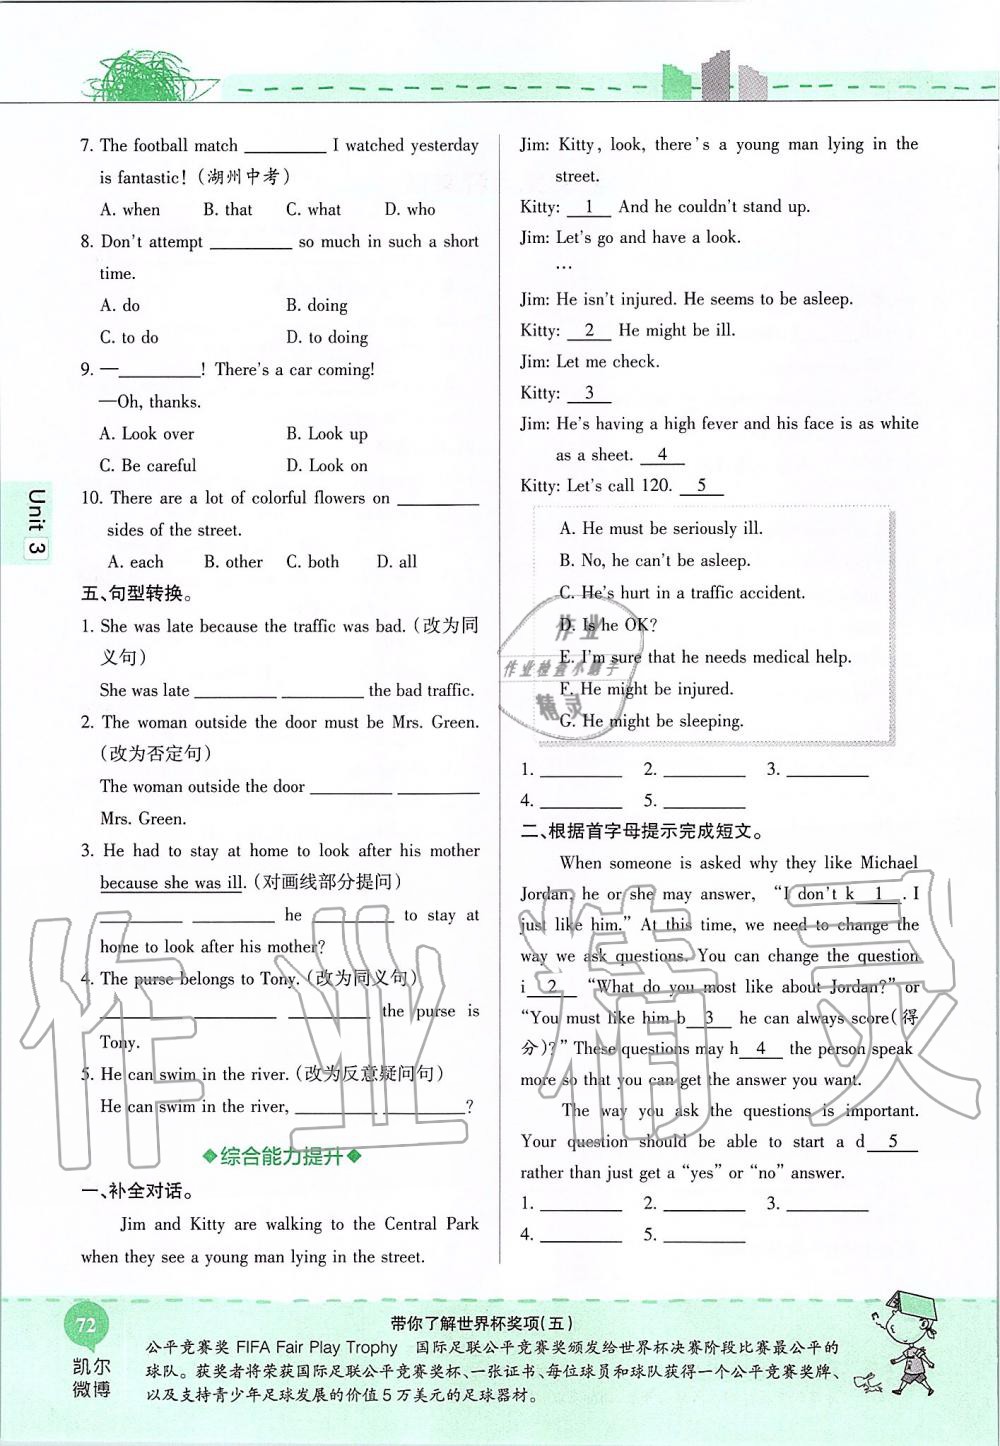 7. The football match __________ I watched yesterday
is fantastic!(湖州中考)
A. when B. that C. what D. who
8. Don't attempt __________ so much in such a short
time.
A. do B. doing
C. to do D. to doing
9. —__________! There's a car coming!
—Oh, thanks.
A. Look over B. Look up
C. Be careful D. Look on
10. There are a lot of colorful flowers on __________
sides of the street.
A. each B. other C. both D. all
五、句型转换。
1. She was late because the traffic was bad.(改为同
义句)
She was late __________ __________ the bad traffic.
2. The woman outside the door must be Mrs. Green.
(改为否定句)
The woman outside the door __________ __________
Mrs. Green.
3. He had to stay at home to look after his mother
because she was ill.(对画线部分提问)
__________ __________ he __________ to stay at
home to look after his mother?
4. The purse belongs to Tony.(改为同义句)
__________ __________ __________ the purse is
Tony.
5. He can swim in the river.(改为反意疑问句)
He can swim in the river, __________ __________?
综合能力提升
一、补全对话。
Jim and Kitty are walking to the Central Park
when they see a young man lying in the street.
Jim: Kitty, look, there's a young man lying in the
street.
Kitty: 1 And he couldn't stand up.
Jim: Let's go and have a look.
…
Jim: He isn't injured. He seems to be asleep.
Kitty: 2 He might be ill.
Jim: Let me check.
Kitty: 3
Jim: He's having a high fever and his face is as white
as a sheet. 4
Kitty: Let's call 120. 5
A. He must be seriously ill.
B. No, he can't be asleep.
C. He's hurt in a traffic accident.
D. Is he OK?
E. I'm sure that he needs medical help.
F. He might be injured.
G. He might be sleeping.
1. __________ 2. __________ 3. __________
4. __________ 5. __________
二、根据首字母提示完成短文。
When someone is asked why they like Michael
Jordan, he or she may answer, “I don't k 1 . I
just like him.” At this time, we need to change the
way we ask questions. You can change the question
i 2 “What do you most like about Jordan?” or
“You must like him b 3 he can always score(得
分)?” These questions may h 4 the person speak
more so that you can get the answer you want.
The way you ask the questions is important.
Your question should be able to start a d 5
rather than just get a “yes” or “no” answer.
1. __________ 2. __________ 3. __________
4. __________ 5. __________
Unit 3
作业
作业检查小助手
精灵
作业精灵
72
凯尔
微博
带你了解世界杯奖项(五)
公平竞赛奖 FIFA Fair Play Trophy 国际足联公平竞赛奖颁发给世界杯决赛阶段比赛最公平的
球队。获奖者将荣获国际足联公平竞赛奖杯、一张证书、每位球员和球队获得一个公平竞赛奖牌、
以及支持青少年足球发展的价值5万美元的足球器材。